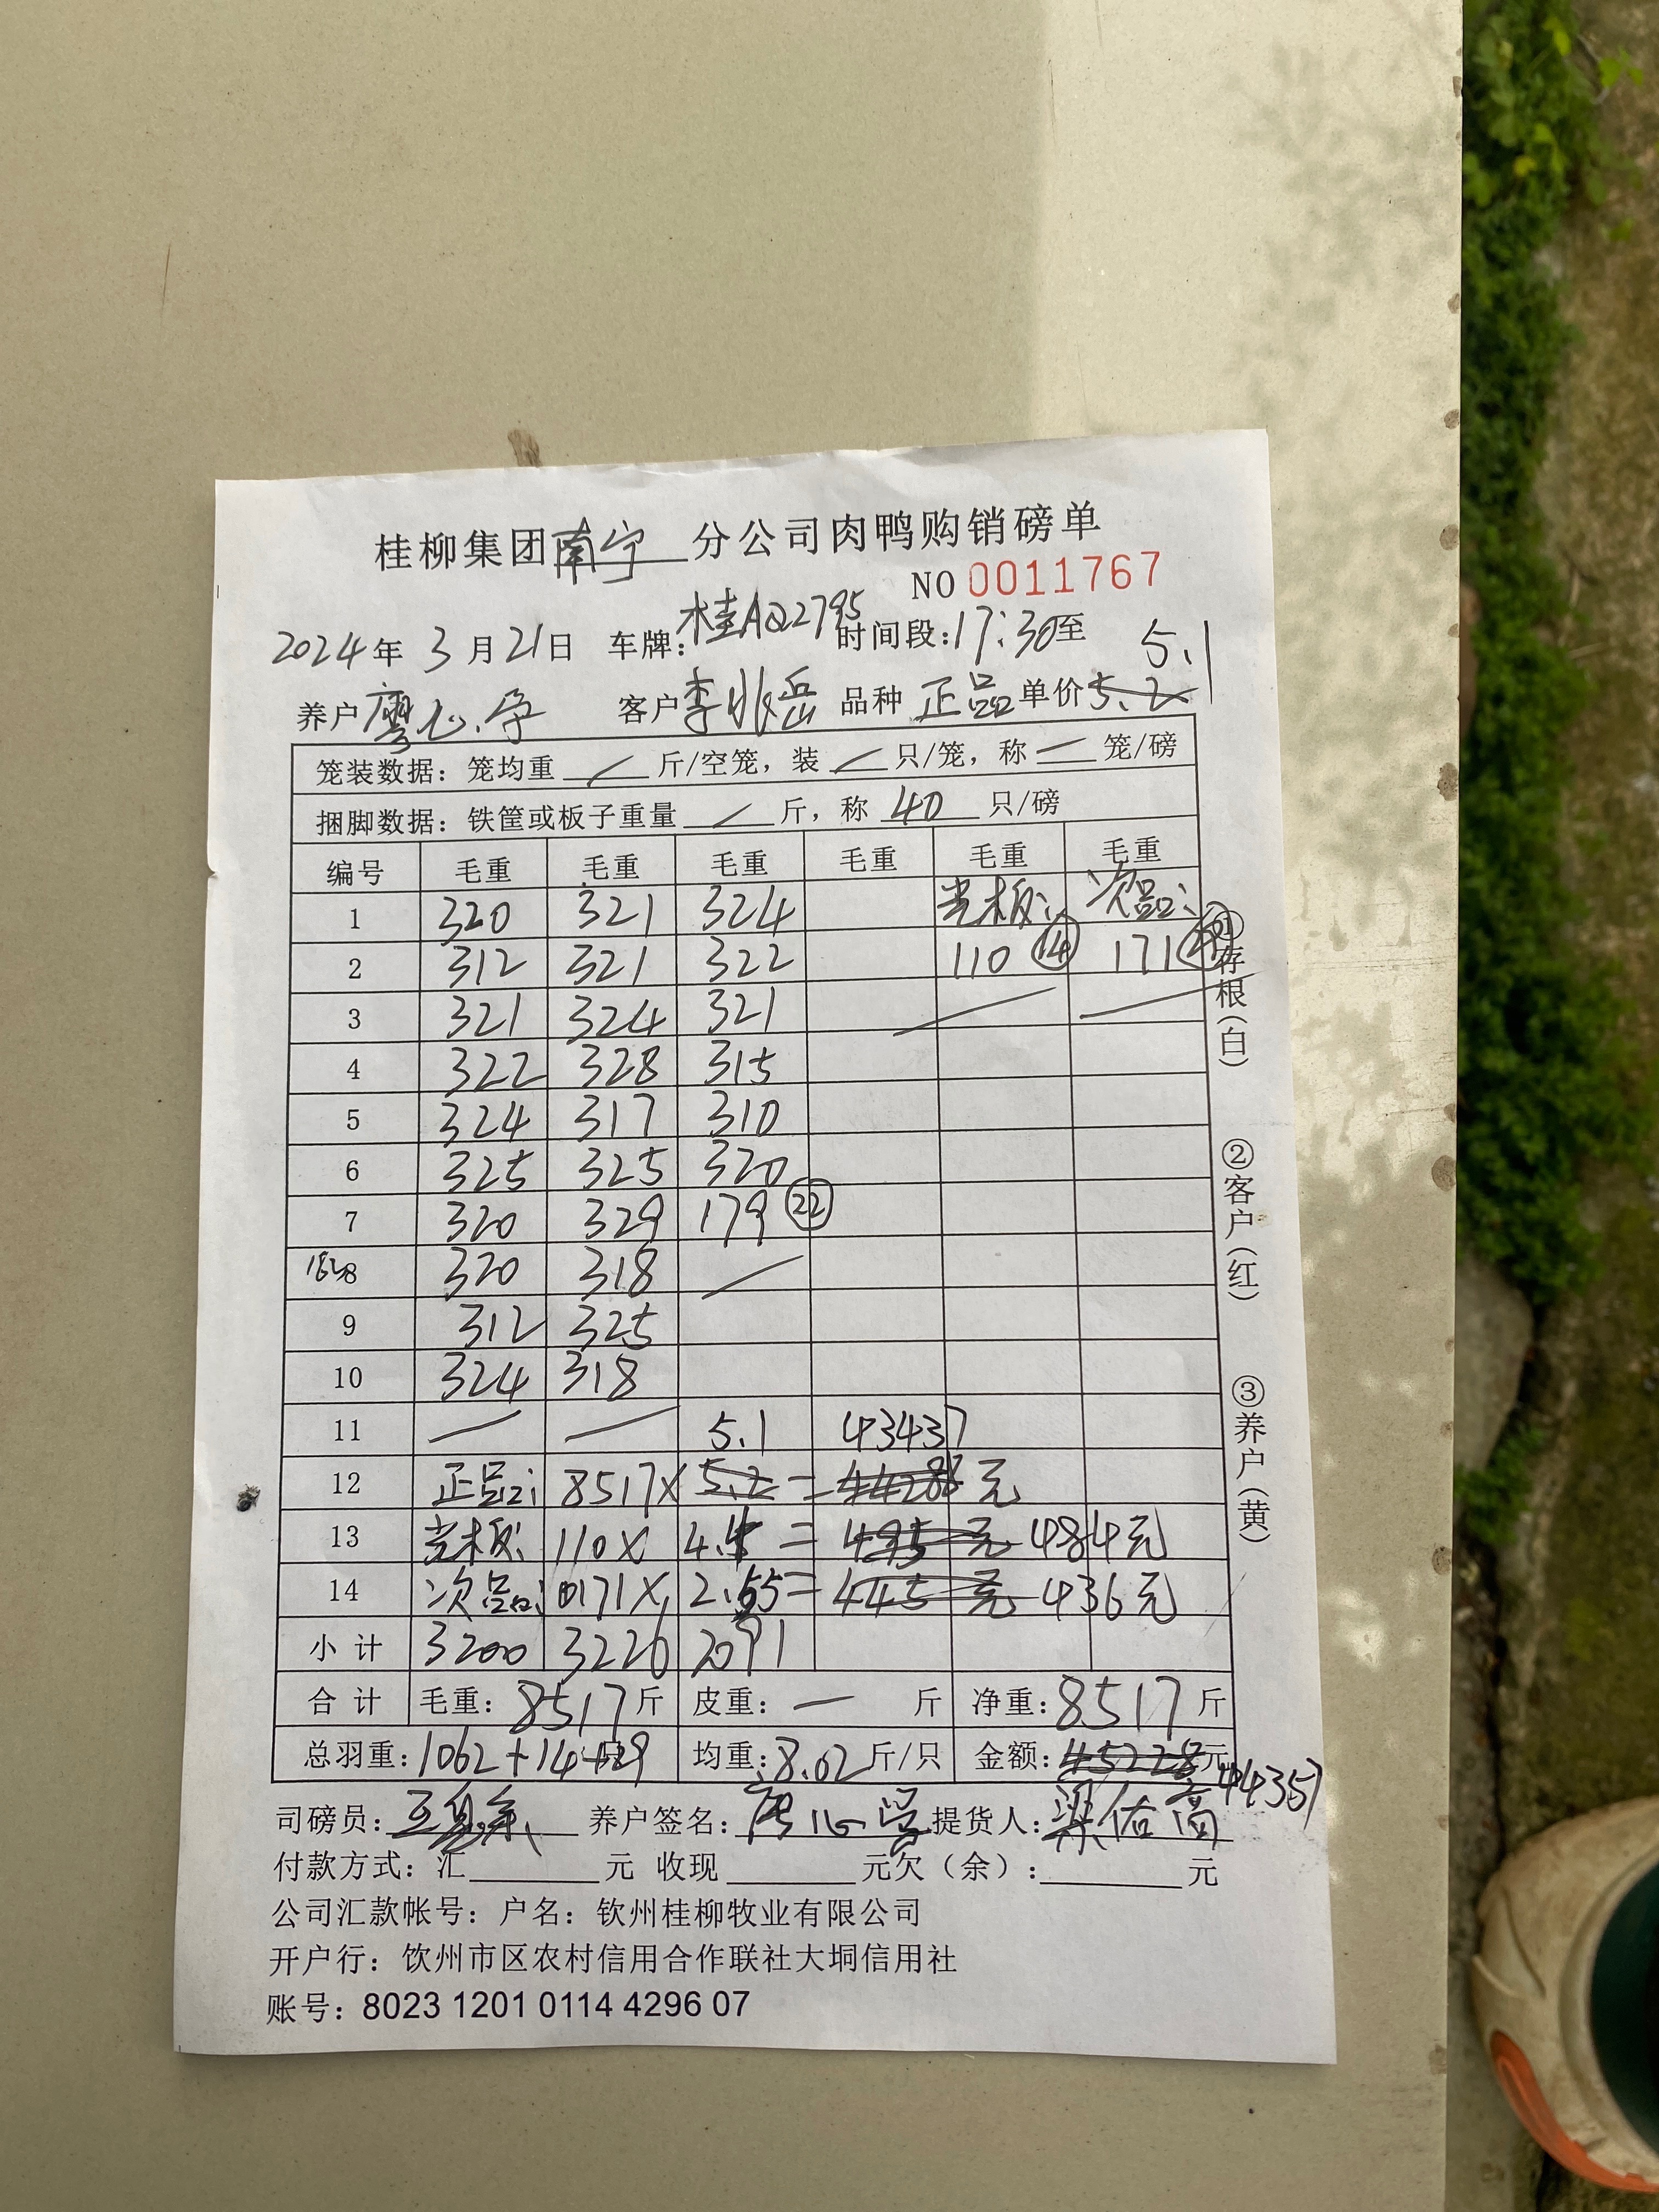 桂柳集团南宁分公司肉鸭购销磅单
NO 0011767
2024年3月21日 车牌:桂AQ2795 时间段:17:30至
5.1
养户廖心 客户李 岳 品种 正品 单价5.2
笼装数据：笼均重 / 斤/空笼，装 / 只/笼，称 — 笼/磅
捆脚数据：铁筐或板子重量 / 斤，称 40 只/磅
编号 毛重 毛重 毛重 毛重 毛重 毛重
1 320 321 324 光板: 次品:
2 312 321 322 110 ⑭ 171
3 321 324 321
4 322 328 315
5 324 317 310
6 325 325 320
7 320 329 179 ㉒
8 320 318 /
9 312 325
10 324 318
11 — — 5.1 43437
12 正品: 8517× 5.2 = 元
13 光板: 110× 4. = 495 元 484元
14 次品: 171× 2.55= 445 元 436元
小计 3200 3226 2091
合计 毛重：8517斤 皮重：— 斤 净重：8517斤
总羽重：1062+14+29 均重:8.02斤/只 金额:45228元
44357
司磅员: 养户签名: 心 提货人:梁佑高
付款方式：汇 元 收现 元欠（余）： 元
公司汇款帐号：户名：钦州桂柳牧业有限公司
开户行：钦州市区农村信用合作联社大垌信用社
账号：8023 1201 0114 4296 07
①存根（白）
②客户（红）
③养户（黄）